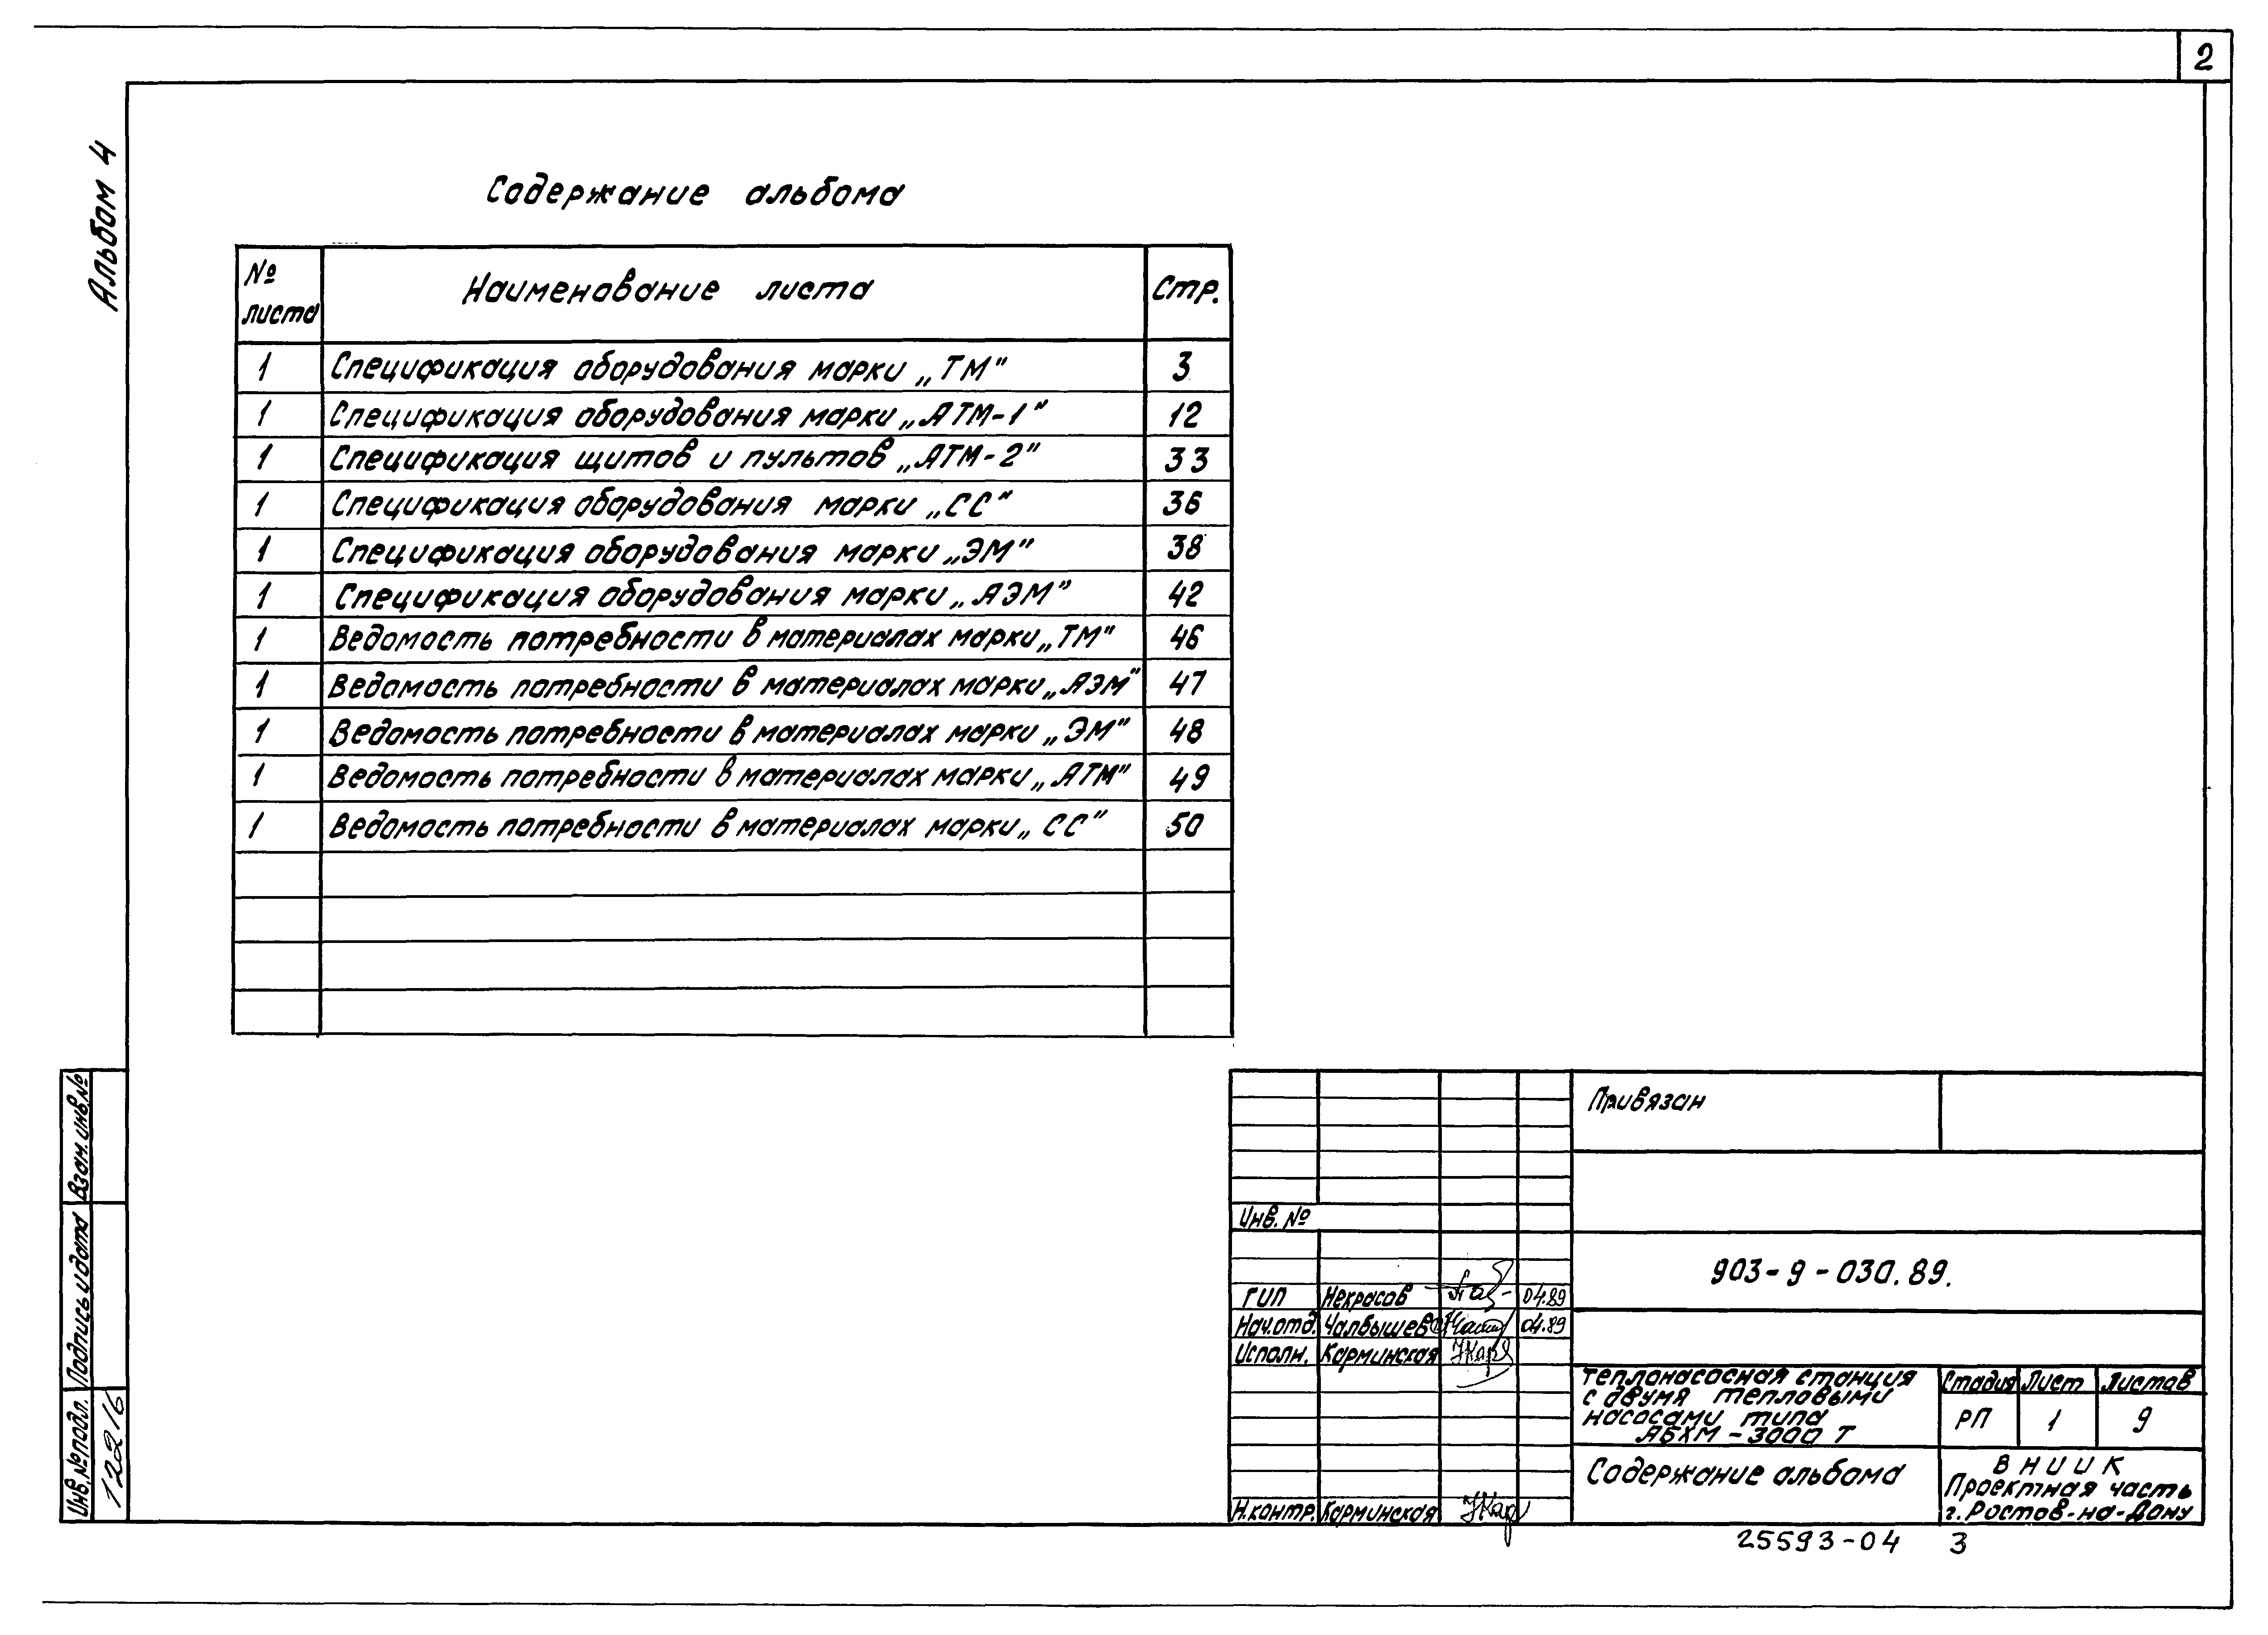 2
Альбом 4
Содержание альбома
№ листа Наименование листа Стр.
1 Спецификация оборудования марки „ТМ" 3
1 Спецификация оборудования марки „АТМ-1" 12
1 Спецификация щитов и пультов „АТМ-2" 33
1 Спецификация оборудования марки „СС" 36
1 Спецификация оборудования марки „ЭМ" 38
1 Спецификация оборудования марки „АЭМ" 42
1 Ведомость потребности в материалах марки „ТМ" 46
1 Ведомость потребности в материалах марки „АЭМ" 47
1 Ведомость потребности в материалах марки „ЭМ" 48
1 Ведомость потребности в материалах марки „АТМ" 49
1 Ведомость потребности в материалах марки „СС" 50
Взам. инв.№
Подпись и дата
Инв.№ подл.
12216
Привязан
Инв. №
903-9-030.89.
ГИП Некрасов 04.89
Нач.отд. Чалбышев 04.89
Исполн. Карминская
Н.контр. Карминская
Теплонасосная станция
с двумя тепловыми
насосами типа
АБХМ-3000 Т
Стадия Лист Листов
РП 1 9
Содержание альбома
ВНИИК
Проектная часть
г. Ростов-на-Дону
25593-04 3